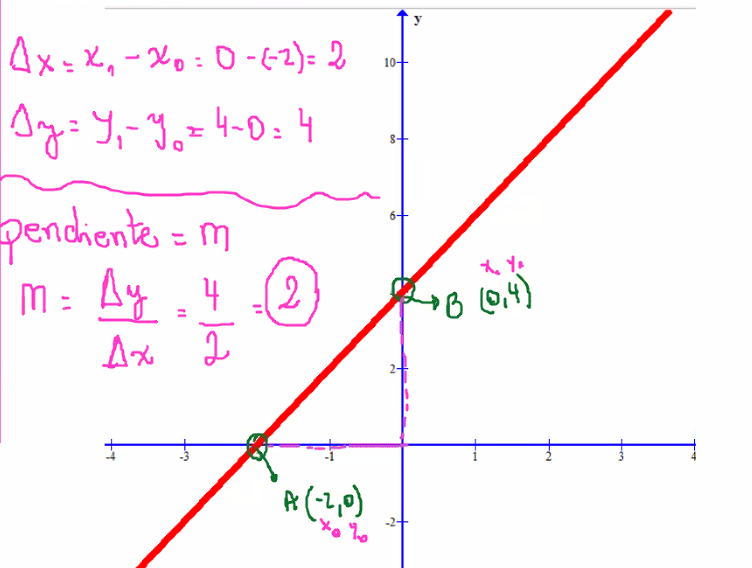 Δx = x₁ - x₀ = 0 - (-2) = 2
Δy = y₁ - y₀ = 4 - 0 = 4
pendiente = m
m = Δy/Δx = 4/2 = 2
y
10
8
6
2
-2
-4
-3
-1
1
2
3
4
x₁ y₁
B (0,4)
A (-2,0)
x₀ y₀